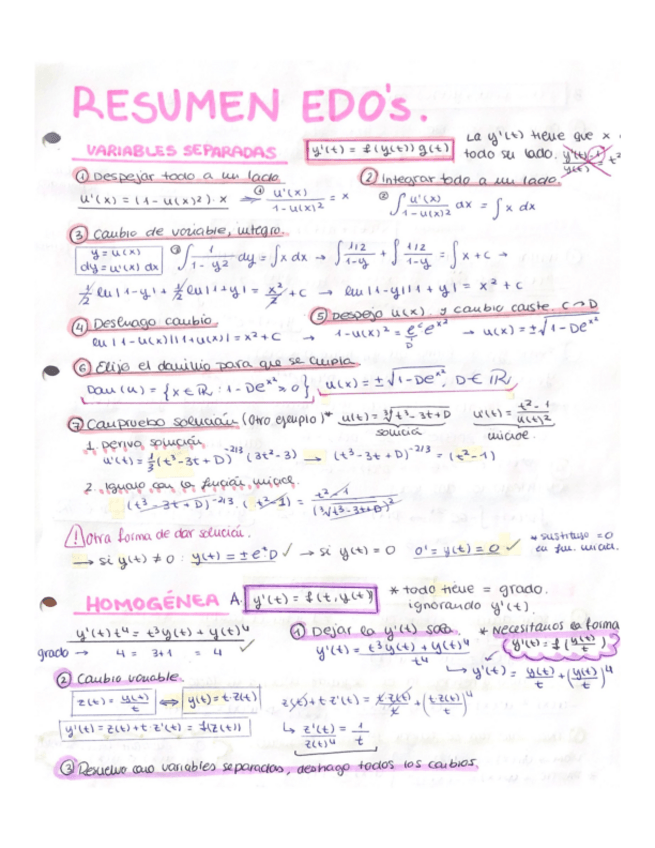 RESUMEN EDO's.
VARIABLES SEPARADAS
y'(t) = f(y(t)) g(t)
La y'(t) tiene que x
todo su lado.
① Despejar todo a un lado.
u'(x) = (1 - u(x)²) · x ⇒ ① u'(x)/(1 - u(x)²) = x
② Integrar todo a un lado.
② ∫ u'(x)/(1 - u(x)²) dx = ∫ x dx
③ Cambio de variable, integro.
y = u(x)
dy = u'(x) dx
③ ∫ 1/(1 - y²) dy = ∫ x dx → ∫ (1/2)/(1-y) + ∫ (1/2)/(1-y) = ∫ x + C →
1/2 ln|1-y| + 1/2 ln|1+y| = x²/2 + C → ln|1-y||1+y| = x² + C
④ Deshago cambio.
ln|1-u(x)||1+u(x)| = x² + C →
⑤ Despejo u(x). y cambio custe. C → D
1-u(x)² = e^c e^x² → u(x) = ±√(1-De^x²)
D
⑥ Elijo el dominio para que se cumpla.
Dom(u) = {x ∈ ℝ : 1-De^x² ≥ 0} u(x) = ±√(1-De^x²), D ∈ ℝ
⑦ Compruebo solución (otro ejemplo)* u(t) = ³√(t³-3t+D) u'(t) = (t²-1)/u(t)²
1. Derivo solución
u'(t) = 1/3 (t³-3t+D)^-2/3 (3t²-3) → (t³-3t+D)^-2/3 = (t²-1)
2. Igualo con la función inicial.
(t³-3t+D)^-2/3 (t²-1) = (t²-1)/(³√(t³-3t+D))²
! Otra forma de dar solución.
→ si y(t) ≠ 0 : y(t) = ±e^t D ✓ → si y(t) = 0 0' = y(t) = 0 ✓
* sustituyo =0
en fun. inicial.
HOMOGÉNEA A. y'(t) = f(t, y(t))
* todo tiene = grado.
ignorando y'(t).
y'(t) t⁴ = t³y(t) + y(t)⁴
grado → 4 = 3+1 = 4 ✓
① Dejar la y'(t) sola.
y'(t) = (t³y(t) + y(t)⁴)/t⁴
* Necesitamos la forma
y'(t) = f(y(t)/t)
↳ y'(t) = y(t)/t + (y(t)/t)⁴
② Cambio variable.
z(t) = y(t)/t ⇔ y(t) = t·z(t)
z(t) + t·z'(t) = t·z(t)/t + (t·z(t)/t)⁴
y'(t) = z(t) + t·z'(t) = f(z(t))
↳ z'(t)/z(t)⁴ = 1/t
③ Resuelvo como variables separadas, deshago todos los cambios.